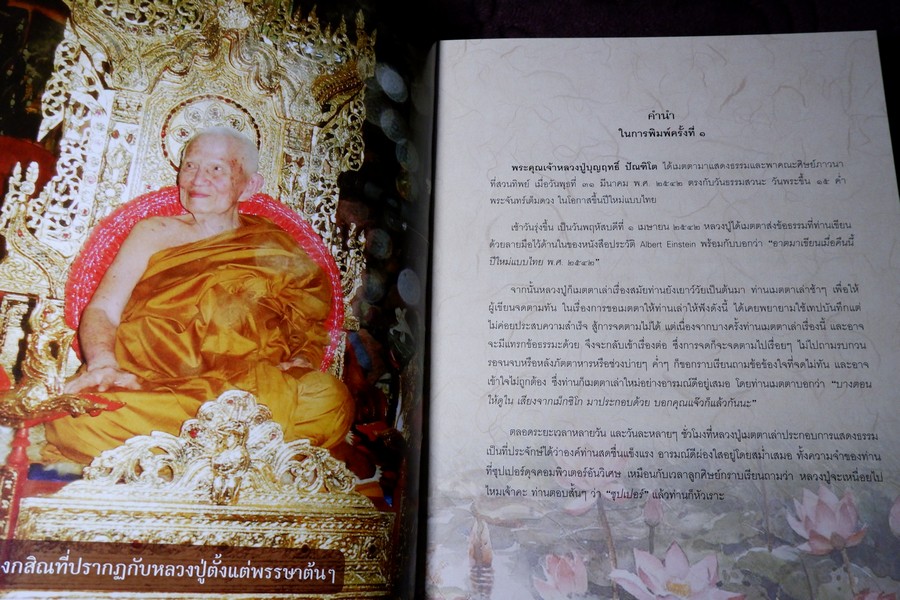 งกสิณที่ปรากฏกับหลวงปู่ตั้งแต่พรรษาต้นๆ
คำนำ
ในการพิมพ์ครั้งที่ ๑
พระคุณเจ้าหลวงปู่บุญฤทธิ์ ปัณฑิโต ได้เมตตามาแสดงธรรมและพาคณะศิษย์ภาวนา
ที่สวนทิพย์ เมื่อวันพุธที่ ๓๑ มีนาคม พ.ศ. ๒๕๔๒ ตรงกับวันธรรมสวนะ วันพระขึ้น ๑๕ ค่ำ
พระจันทร์เต็มดวง ในโอกาสขึ้นปีใหม่แบบไทย
เช้าวันรุ่งขึ้น เป็นวันพฤหัสบดีที่ ๑ เมษายน ๒๕๔๒ หลวงปู่ได้เมตตาส่งข้อธรรมที่ท่านเขียน
ด้วยลายมือไว้ด้านในของหนังสือประวัติ Albert Einstein พร้อมกับบอกว่า “อาตมาเขียนเมื่อคืนนี้
ปีใหม่แบบไทย พ.ศ. ๒๕๔๒”
จากนั้นหลวงปู่ก็เมตตาเล่าเรื่องสมัยท่านยังเยาว์วัยเป็นต้นมา ท่านเมตตาเล่าช้าๆ เพื่อให้
ผู้เขียนจดตามทัน ในเรื่องการขอเมตตาให้ท่านเล่าให้ฟังดังนี้ ได้เคยพยายามใช้เทปบันทึกแต่
ไม่ค่อยประสบความสำเร็จ สู้การจดตามไม่ได้ แต่เนื่องจากบางครั้งท่านเมตตาเล่าเรื่องนี้ และอาจ
จะมีแทรกข้อธรรมะด้วย จึงจะกลับเข้าเรื่องต่อ ซึ่งการจดก็จะจดตามไปเรื่อยๆ ไม่ไปถามรบกวน
รอจนจบหรือหลังภัตตาหารหรือช่วงบ่ายๆ ค่ำๆ ก็ขอกราบเรียนถามข้อข้องใจที่จดไม่ทัน และอาจ
เข้าใจไม่ถูกต้อง ซึ่งท่านก็เมตตาเล่าใหม่อย่างอารมณ์ดีอยู่เสมอ โดยท่านเมตตาบอกว่า “บางตอน
ให้ดูใน เสียงจากเม็กซิโก มาประกอบด้วย บอกคุณแจ๊วก็แล้วกันนะ”
ตลอดระยะเวลาหลายวัน และวันละหลายๆ ชั่วโมงที่หลวงปู่เมตตาเล่าประกอบการแสดงธรรม
เป็นที่ประจักษ์ได้ว่าองค์ท่านสดชื่นแข็งแรง อารมณ์ดีผ่องใสอยู่โดยสม่ำเสมอ ทั้งความจำของท่าน
ที่ซุปเปอร์ดุจคอมพิวเตอร์อันวิเศษ เหมือนกับเวลาลูกศิษย์กราบเรียนถามว่า หลวงปู่จะเหนื่อยไป
ไหมเจ้าคะ ท่านตอบสั้นๆ ว่า “ซุปเปอร์” แล้วท่านก็หัวเราะ